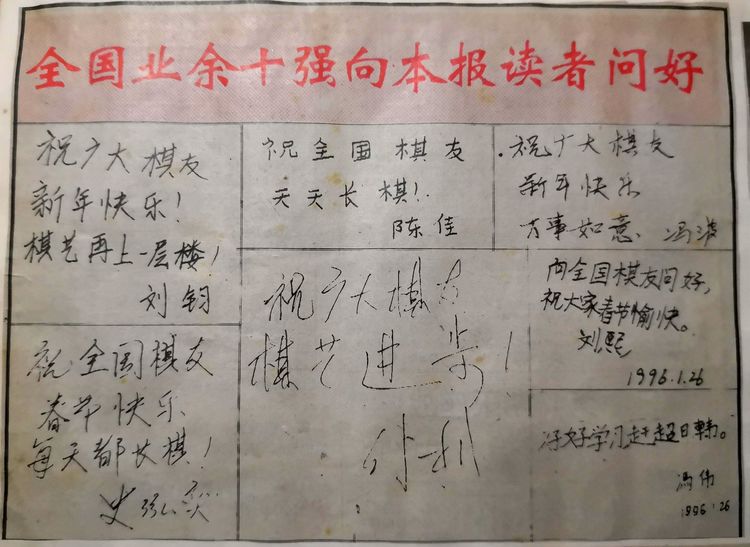 全国业余十强向本报读者问好
祝广大棋友
新年快乐!
棋艺再上一层楼!
刘钧
祝全国棋友
天天长棋!
陈佳
祝广大棋友
新年快乐
万事如意、冯波
祝全国棋友
春节快乐
每天都长棋!
祝广大棋友
棋艺进步!
孙利
向全国棋友问好,
祝大家春节愉快。
刘熙
1996.1.26
好好学习赶超日韩。
冯伟
1996 1 26